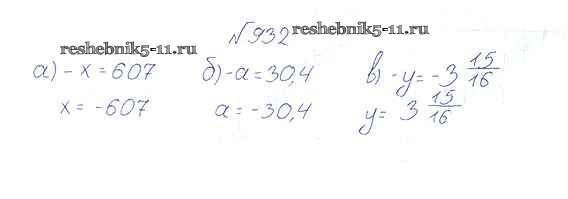 №932 reshebnik5-11.ru
reshebnik5-11.ru
а) -x = 607 б) -a = 30,4 в) -y = -3 15/16
x = -607 a = -30,4 y = 3 15/16